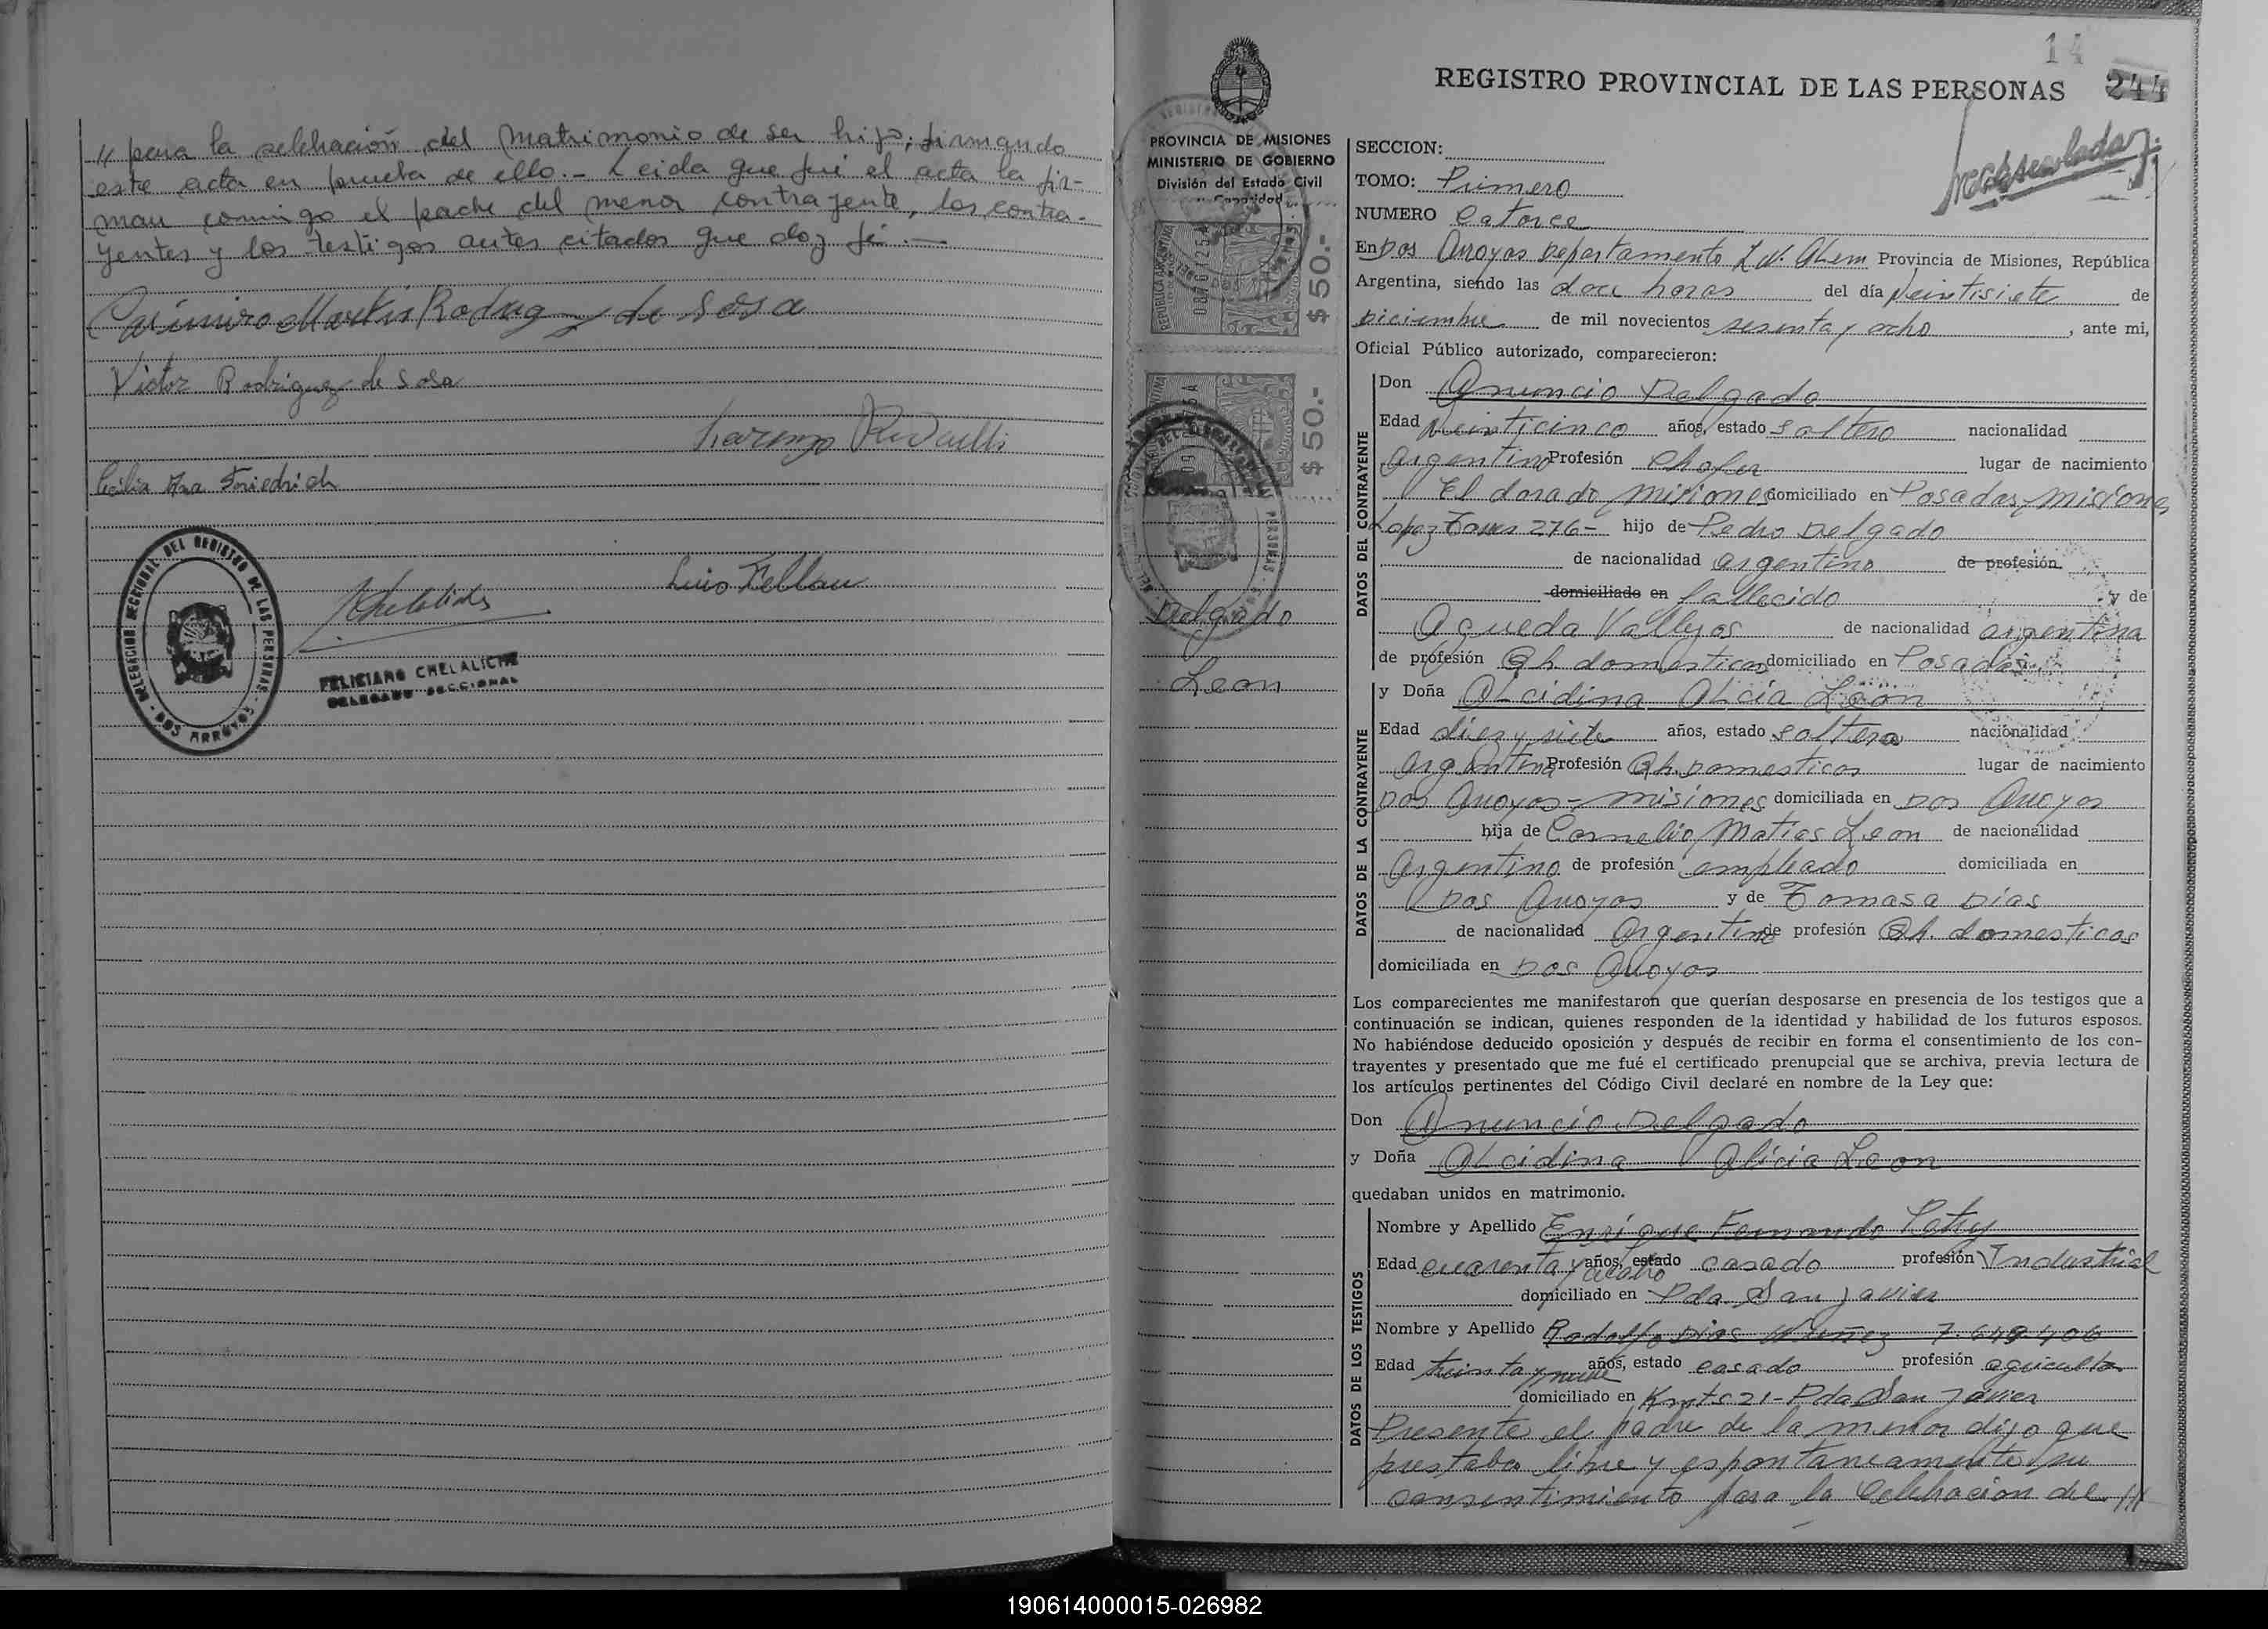 // para la selebración del Matrimonio de su hijo, firmando
este acta en prueba de ello.- Leida que fué el acta la fir-
man conmigo el padre del menor contrayente, los contra-
yentes y los testigos antes citados que doy fé.-
Casimiro Martin Rodrigez de Sosa
Victor Rodriguez de Sosa
Lorenzo
Cecilia Ana Friedrich
Luis Fellau
DELEGACION SECCIONAL DEL REGISTRO DE LAS PERSONAS - DOS ARROYOS -
FELICIANO CHELALICHE
DELEGADO SECCIONAL
14
REGISTRO PROVINCIAL DE LAS PERSONAS 244
PROVINCIA DE MISIONES
MINISTERIO DE GOBIERNO
División del Estado Civil
y Capacidad
REPUBLICA ARGENTINA
$ 50.-
$ 50.-
Delgado
Leon
SECCION:
TOMO: Primero
NUMERO Catorce
En Dos Arroyos Departamento L.N. Alem Provincia de Misiones, República
Argentina, siendo las doce horas del día Veintisiete de
Diciembre de mil novecientos sesenta y ocho, ante mi,
Oficial Público autorizado, comparecieron:
DATOS DEL CONTRAYENTE
Don Anuncio Delgado
Edad Veinticinco años, estado soltero nacionalidad
argentino Profesión Chofer lugar de nacimiento
El dorado Misiones domiciliado en Posadas, misiones
Lopez Torres 276- hijo de Pedro Delgado
de nacionalidad argentino de profesión
domiciliado en fallecido y de
Agueda Vallejos de nacionalidad argentina
de profesión Qh. domesticos domiciliado en Posadas
DATOS DE LA CONTRAYENTE
y Doña Alcidina Alicia León
Edad diez y siete años, estado soltera nacionalidad
argentina Profesión Qh. Domesticos lugar de nacimiento
Dos Arroyos - misiones domiciliada en Dos Arroyos
hija de Cornelio Matias Leon de nacionalidad
Argentino de profesión empleado domiciliada en
Dos Arroyos y de Tomasa Dias
de nacionalidad Argentina de profesión Qh. domesticos
domiciliada en Dos Arroyos
Los comparecientes me manifestaron que querían desposarse en presencia de los testigos que a
continuación se indican, quienes responden de la identidad y habilidad de los futuros esposos.
No habiéndose deducido oposición y después de recibir en forma el consentimiento de los con-
trayentes y presentado que me fué el certificado prenupcial que se archiva, previa lectura de
los artículos pertinentes del Código Civil declaré en nombre de la Ley que:
Don Anuncio Delgado
y Doña Alcidina Alicia Leon
quedaban unidos en matrimonio.
DATOS DE LOS TESTIGOS
Nombre y Apellido Enrique Fernando Petry
Edad cuarenta y cuatro años, estado casado profesión Industrial
domiciliado en Pda San Javier
Nombre y Apellido Rodolfo Dias Nuñez 7.649406
Edad treinta y nueve años, estado casado profesión agricultor
domiciliado en Kmts 21- Pda San Javier
Presente el padre de la menor dijo que
prestaba libre y espontaneamente su
consentimiento para la Celebracion del ///
190614000015-026982